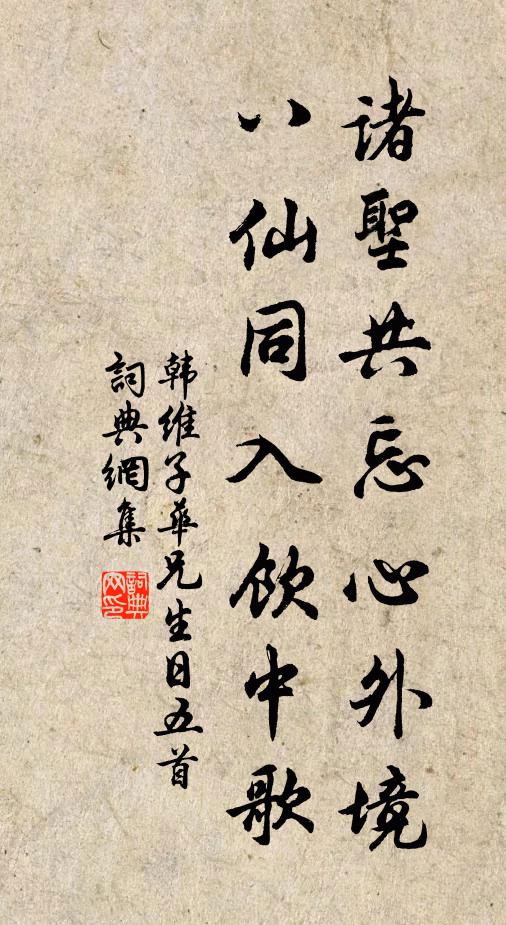 诸聖共忘心外境
八仙同入飲中歌
韩维子華兄生日五首
詞典網集
詞典
网印